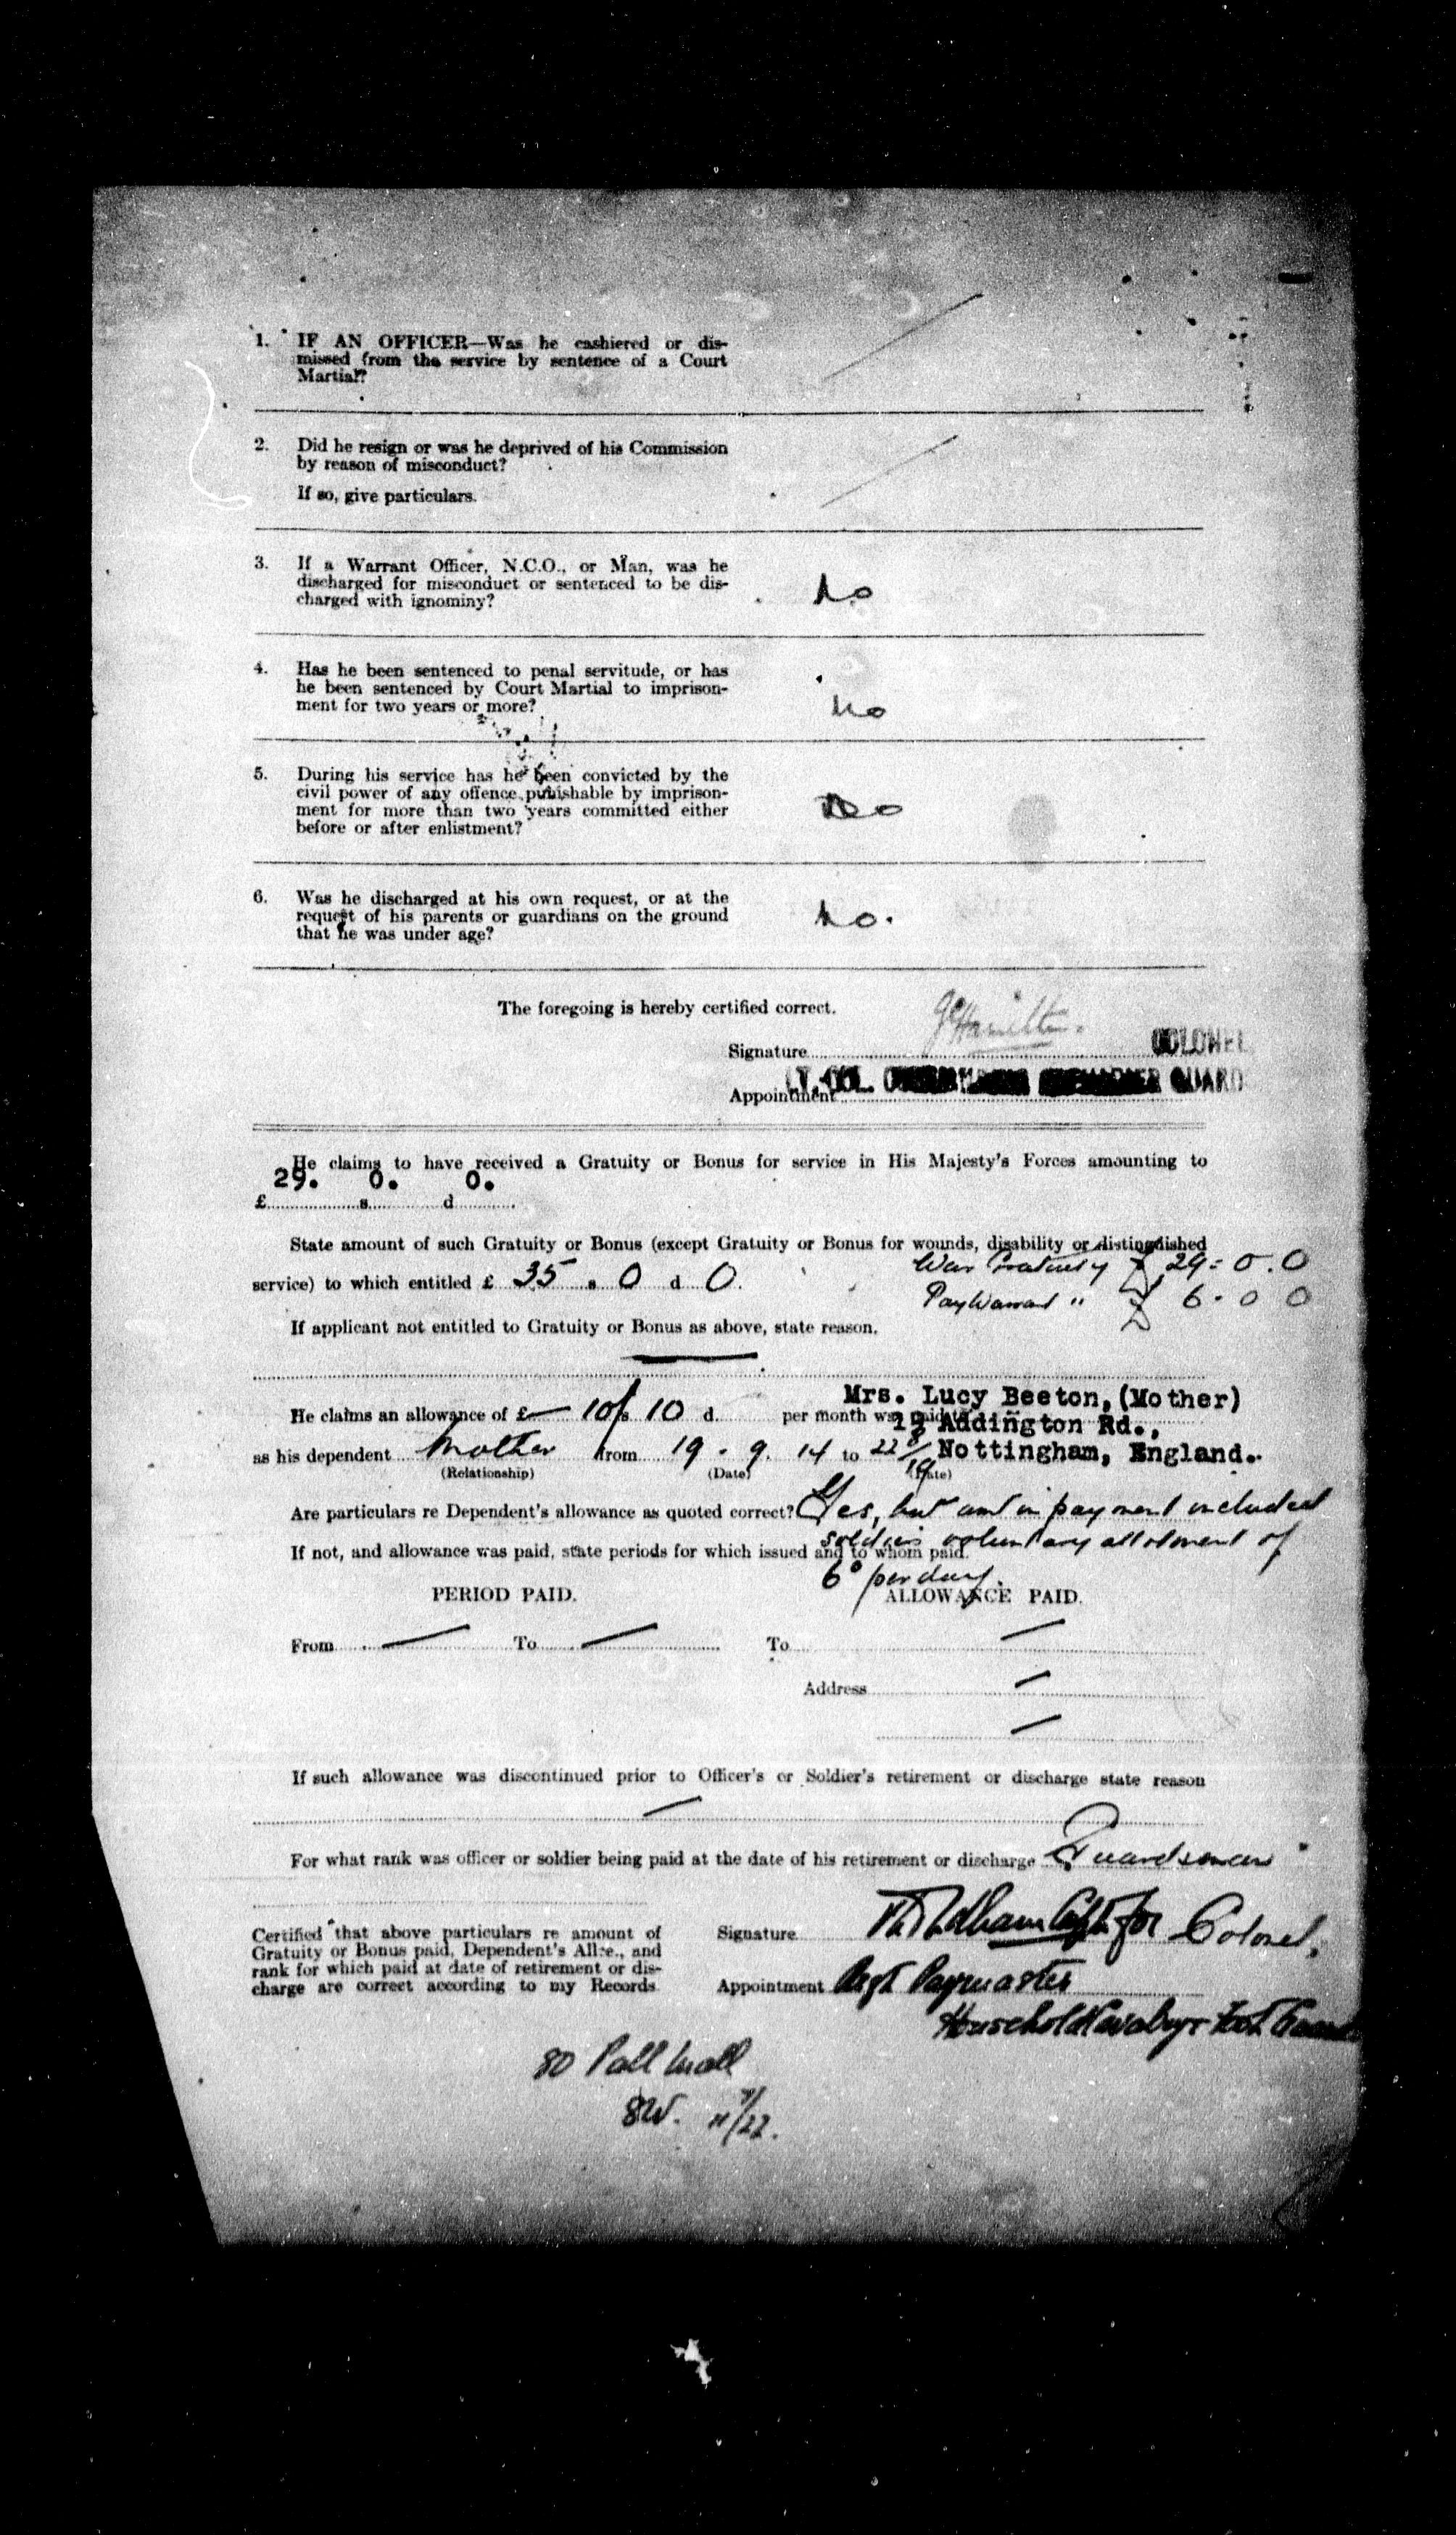 1. IF AN OFFICER—Was he cashiered or dis-
missed from the service by sentence of a Court
Martial?
2. Did he resign or was he deprived of his Commission
by reason of misconduct?
If so, give particulars.
3. If a Warrant Officer, N.C.O., or Man, was he
discharged for misconduct or sentenced to be dis-
charged with ignominy?
No
4. Has he been sentenced to penal servitude, or has
he been sentenced by Court Martial to imprison-
ment for two years or more?
No
5. During his service has he been convicted by the
civil power of any offence punishable by imprison-
ment for more than two years committed either
before or after enlistment?
No
6. Was he discharged at his own request, or at the
request of his parents or guardians on the ground
that he was under age?
No.
The foregoing is hereby certified correct.
Signature Hamilton. COLONEL
Appointment LT. COL. GUARD
He claims to have received a Gratuity or Bonus for service in His Majesty's Forces amounting to
29. 0. 0.
£ s d
State amount of such Gratuity or Bonus (except Gratuity or Bonus for wounds, disability or distinguished
service) to which entitled £ 35 s 0 d 0.
War Gratuity £ 29 = 0.0
Pay Warrant " £ 6 - 0 0
If applicant not entitled to Gratuity or Bonus as above, state reason.
Mrs. Lucy Beeton, (Mother)
He claims an allowance of £ — 10/s 10 d. per month was paid to
Addington Rd.,
as his dependent Mother from 19 . 9. 14 to 22 19
Nottingham, England.
(Relationship) (Date) (Date)
Are particulars re Dependent's allowance as quoted correct? Yes, but amt in payment included
soldiers voluntary allotment of
If not, and allowance was paid, state periods for which issued and to whom paid.
6d per day.
PERIOD PAID. ALLOWANCE PAID.
From — To — To —
Address —
If such allowance was discontinued prior to Officer's or Soldier's retirement or discharge state reason
—
For what rank was officer or soldier being paid at the date of his retirement or discharge Guardsman
Certified that above particulars re amount of
Gratuity or Bonus paid, Dependent's Allce., and
rank for which paid at date of retirement or dis-
charge are correct according to my Records.
Signature Capt for Colonel,
Appointment Regt Paymaster
Household Cavalry & Foot Guards
80 Pall Mall
SW.